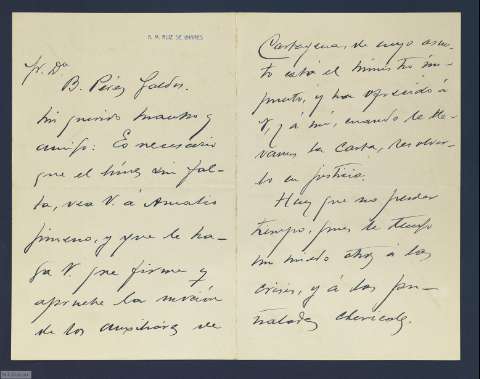 R. M. RUIZ DE
Sr. Dn.
B. Pérez Galdós.
Mi querido maestro y
amigo: Es necesario
que el lunes sin fal-
ta, vea V. á Amalio
Jimeno, y que le ha-
ga V. que firme y
apruebe la moción
de los auxiliares de
Cartagena, de cuyo asun-
to está el ministro im-
puesto, y ha ofrecido á
V. y á mi, cuando le lle-
vamos la carta, resolver-
lo en justicia.
Hay que no perder
tiempo, pues, le tengo
un miedo atroz á las
crisis, y á las pu-
ñaladas